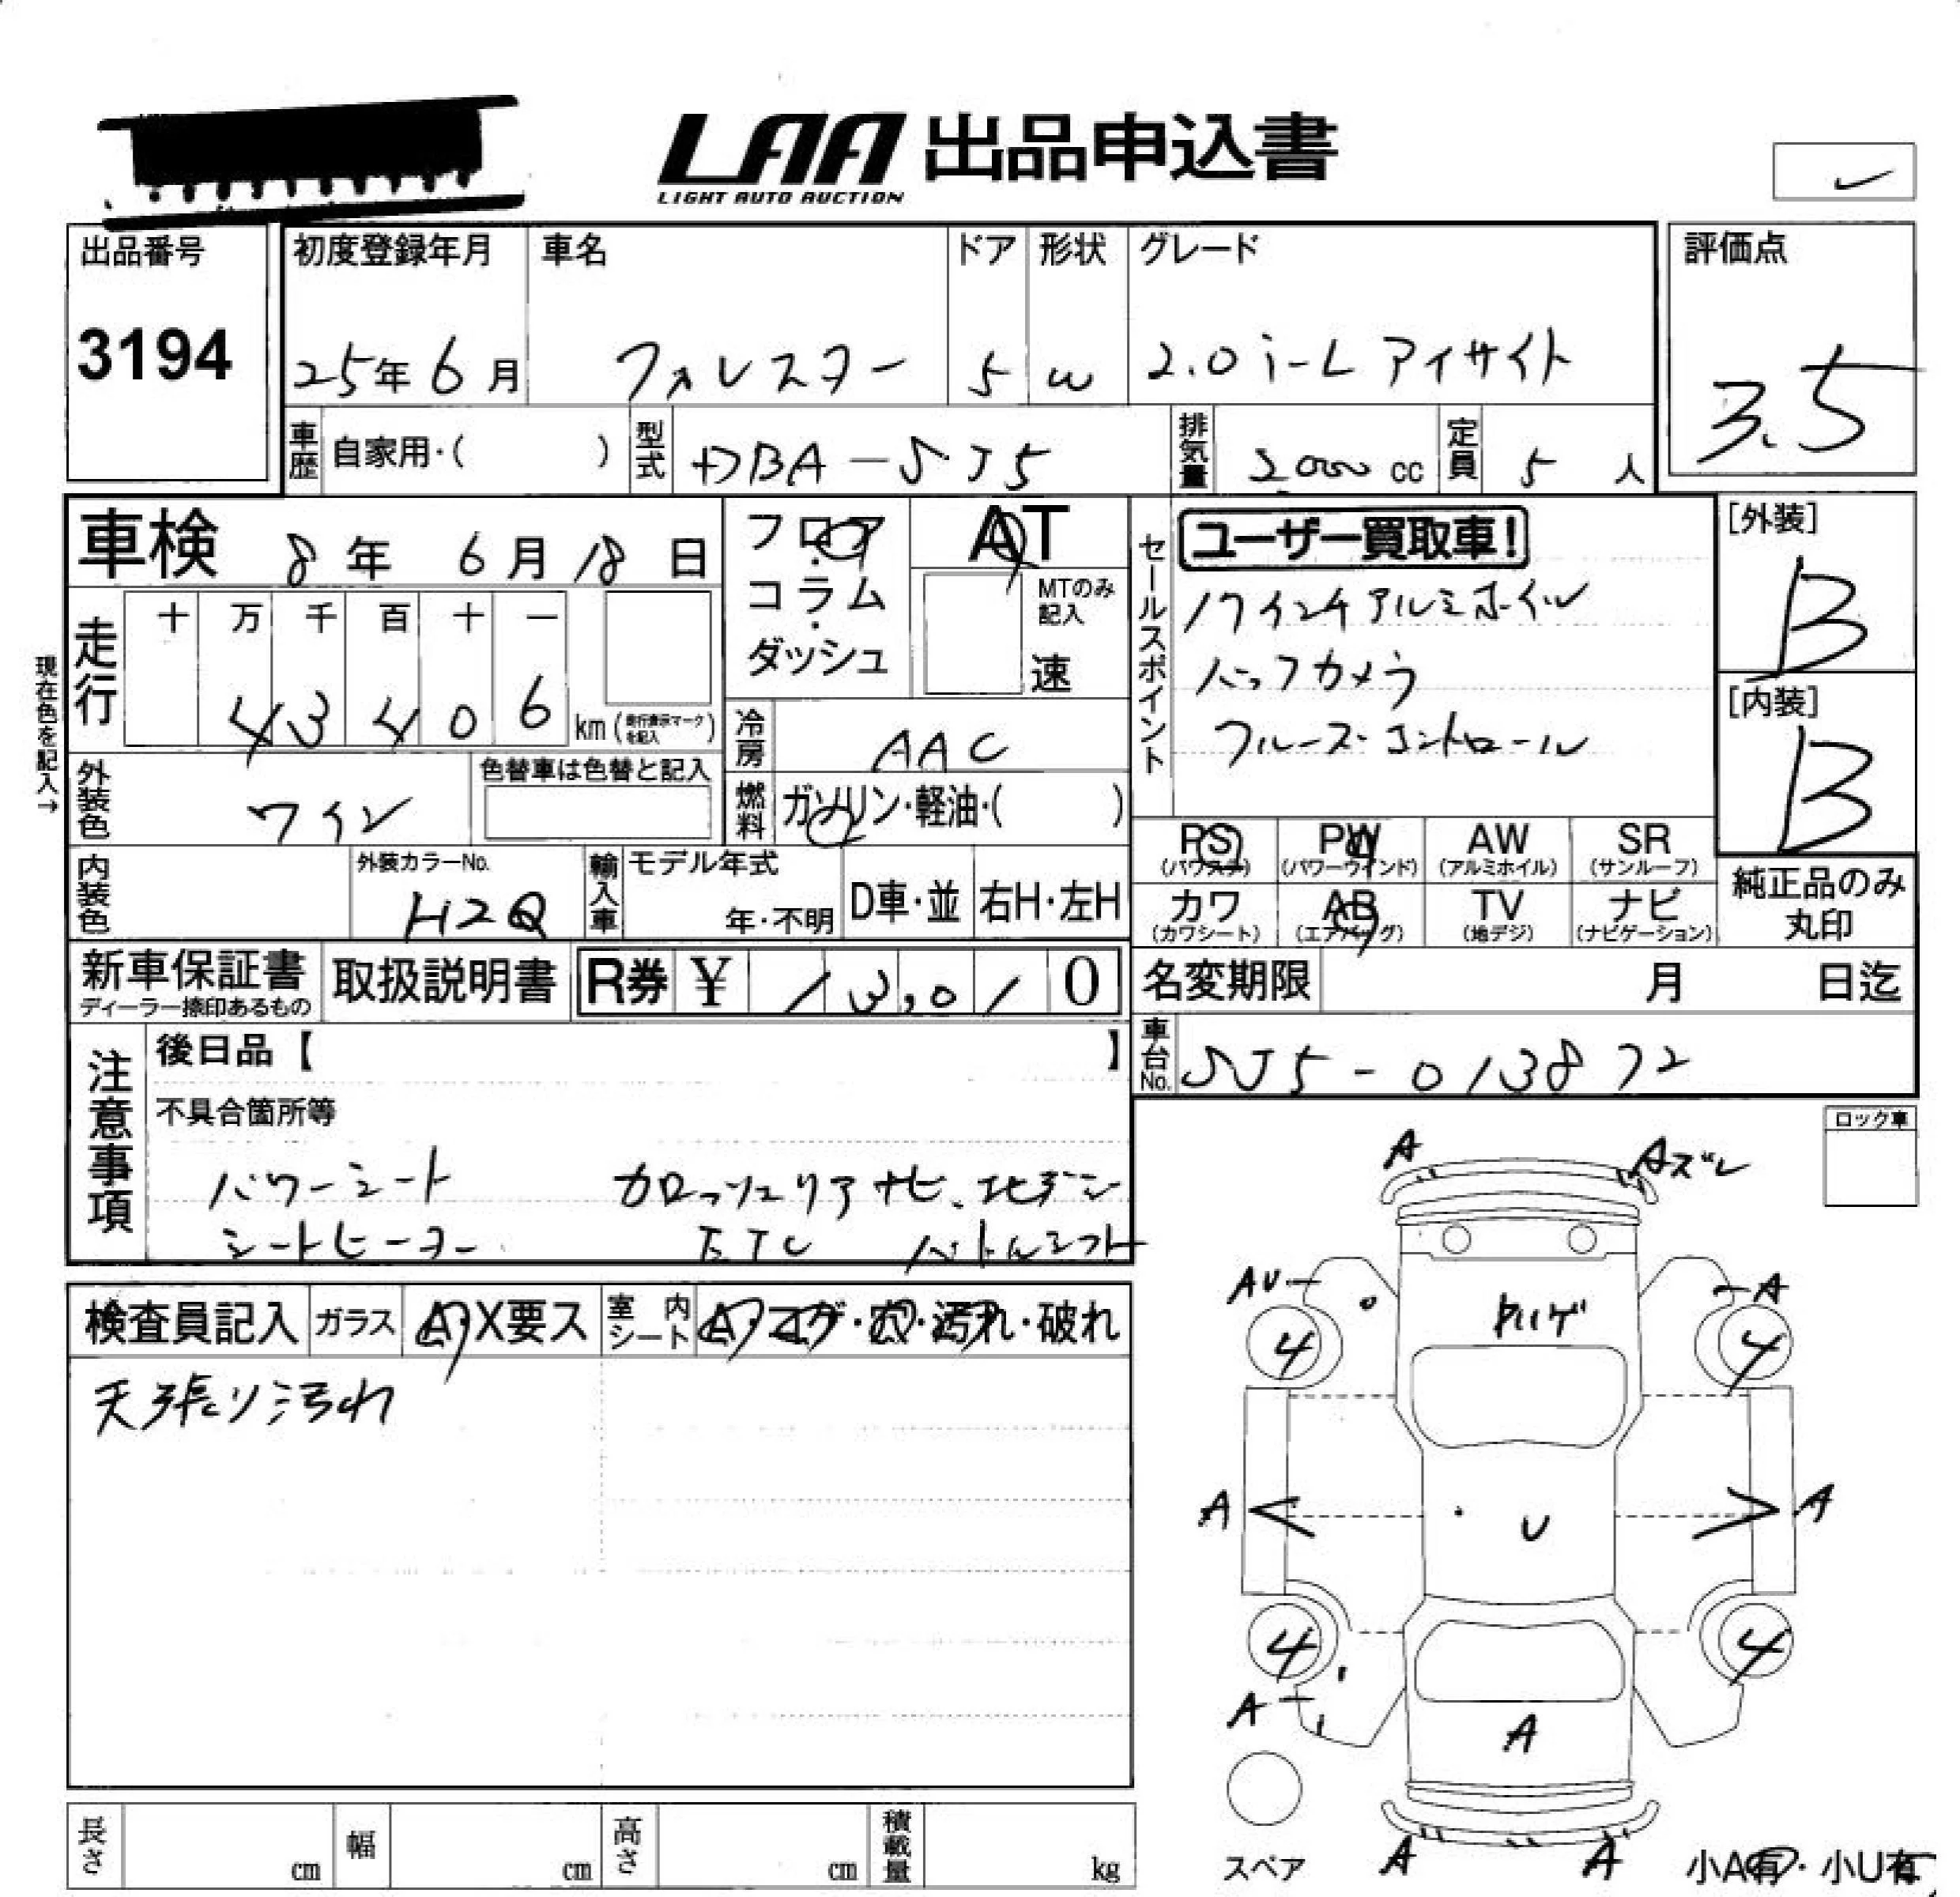 LAA 出品申込書
LIGHT AUTO AUCTION
出品番号
3194
初度登録年月
25年6月
車名
フォレスター
ドア
5
形状
W
グレード
2.0i-L アイサイト
評価点
3.5
車歴
自家用・( )
型式
DBA-SJ5
排気量
2000 cc
定員
5 人
車検 8年 6月 18日
フロア・コラム・ダッシュ
AT
MTのみ記入
速
セールスポイント
ユーザー買取車!
17インチアルミホイル
バックカメラ
クルーズコントロール
[外装]
B
[内装]
B
現在色を記入→
走行
十 万 千 百 十 一
4 3 4 0 6
km (走行表示マークを記入)
冷房
AAC
外装色
ワイン
色替車は色替と記入
燃料
ガソリン・軽油・( )
PS
(パワステ)
PW
(パワーウインド)
AW
(アルミホイル)
SR
(サンルーフ)
カワ
(カワシート)
AB
(エアバッグ)
TV
(地デジ)
ナビ
(ナビゲーション)
純正品のみ
丸印
内装色
外装カラーNo.
H2Q
輸入車
モデル年式
年・不明
D車・並
右H・左H
新車保証書
ディーラー捺印あるもの
取扱説明書
R券 ¥ 13,010
名変期限 月 日迄
車台No.
SJ5-013872
注意事項
後日品【 】
不具合箇所等
パワーシート カロッツェリアナビ、地デジ
シートヒーター ETC パドルシフト
ロック車
検査員記入
ガラス
A・X要ス
室内シート
A・コゲ・穴・汚れ・破れ
天張り汚れ
A
Aズレ
AU
A
4
4
A
U
A
4
4
A
A
A
A
スペア
小A有・小U有
長さ cm
幅 cm
高さ cm
積載量 kg